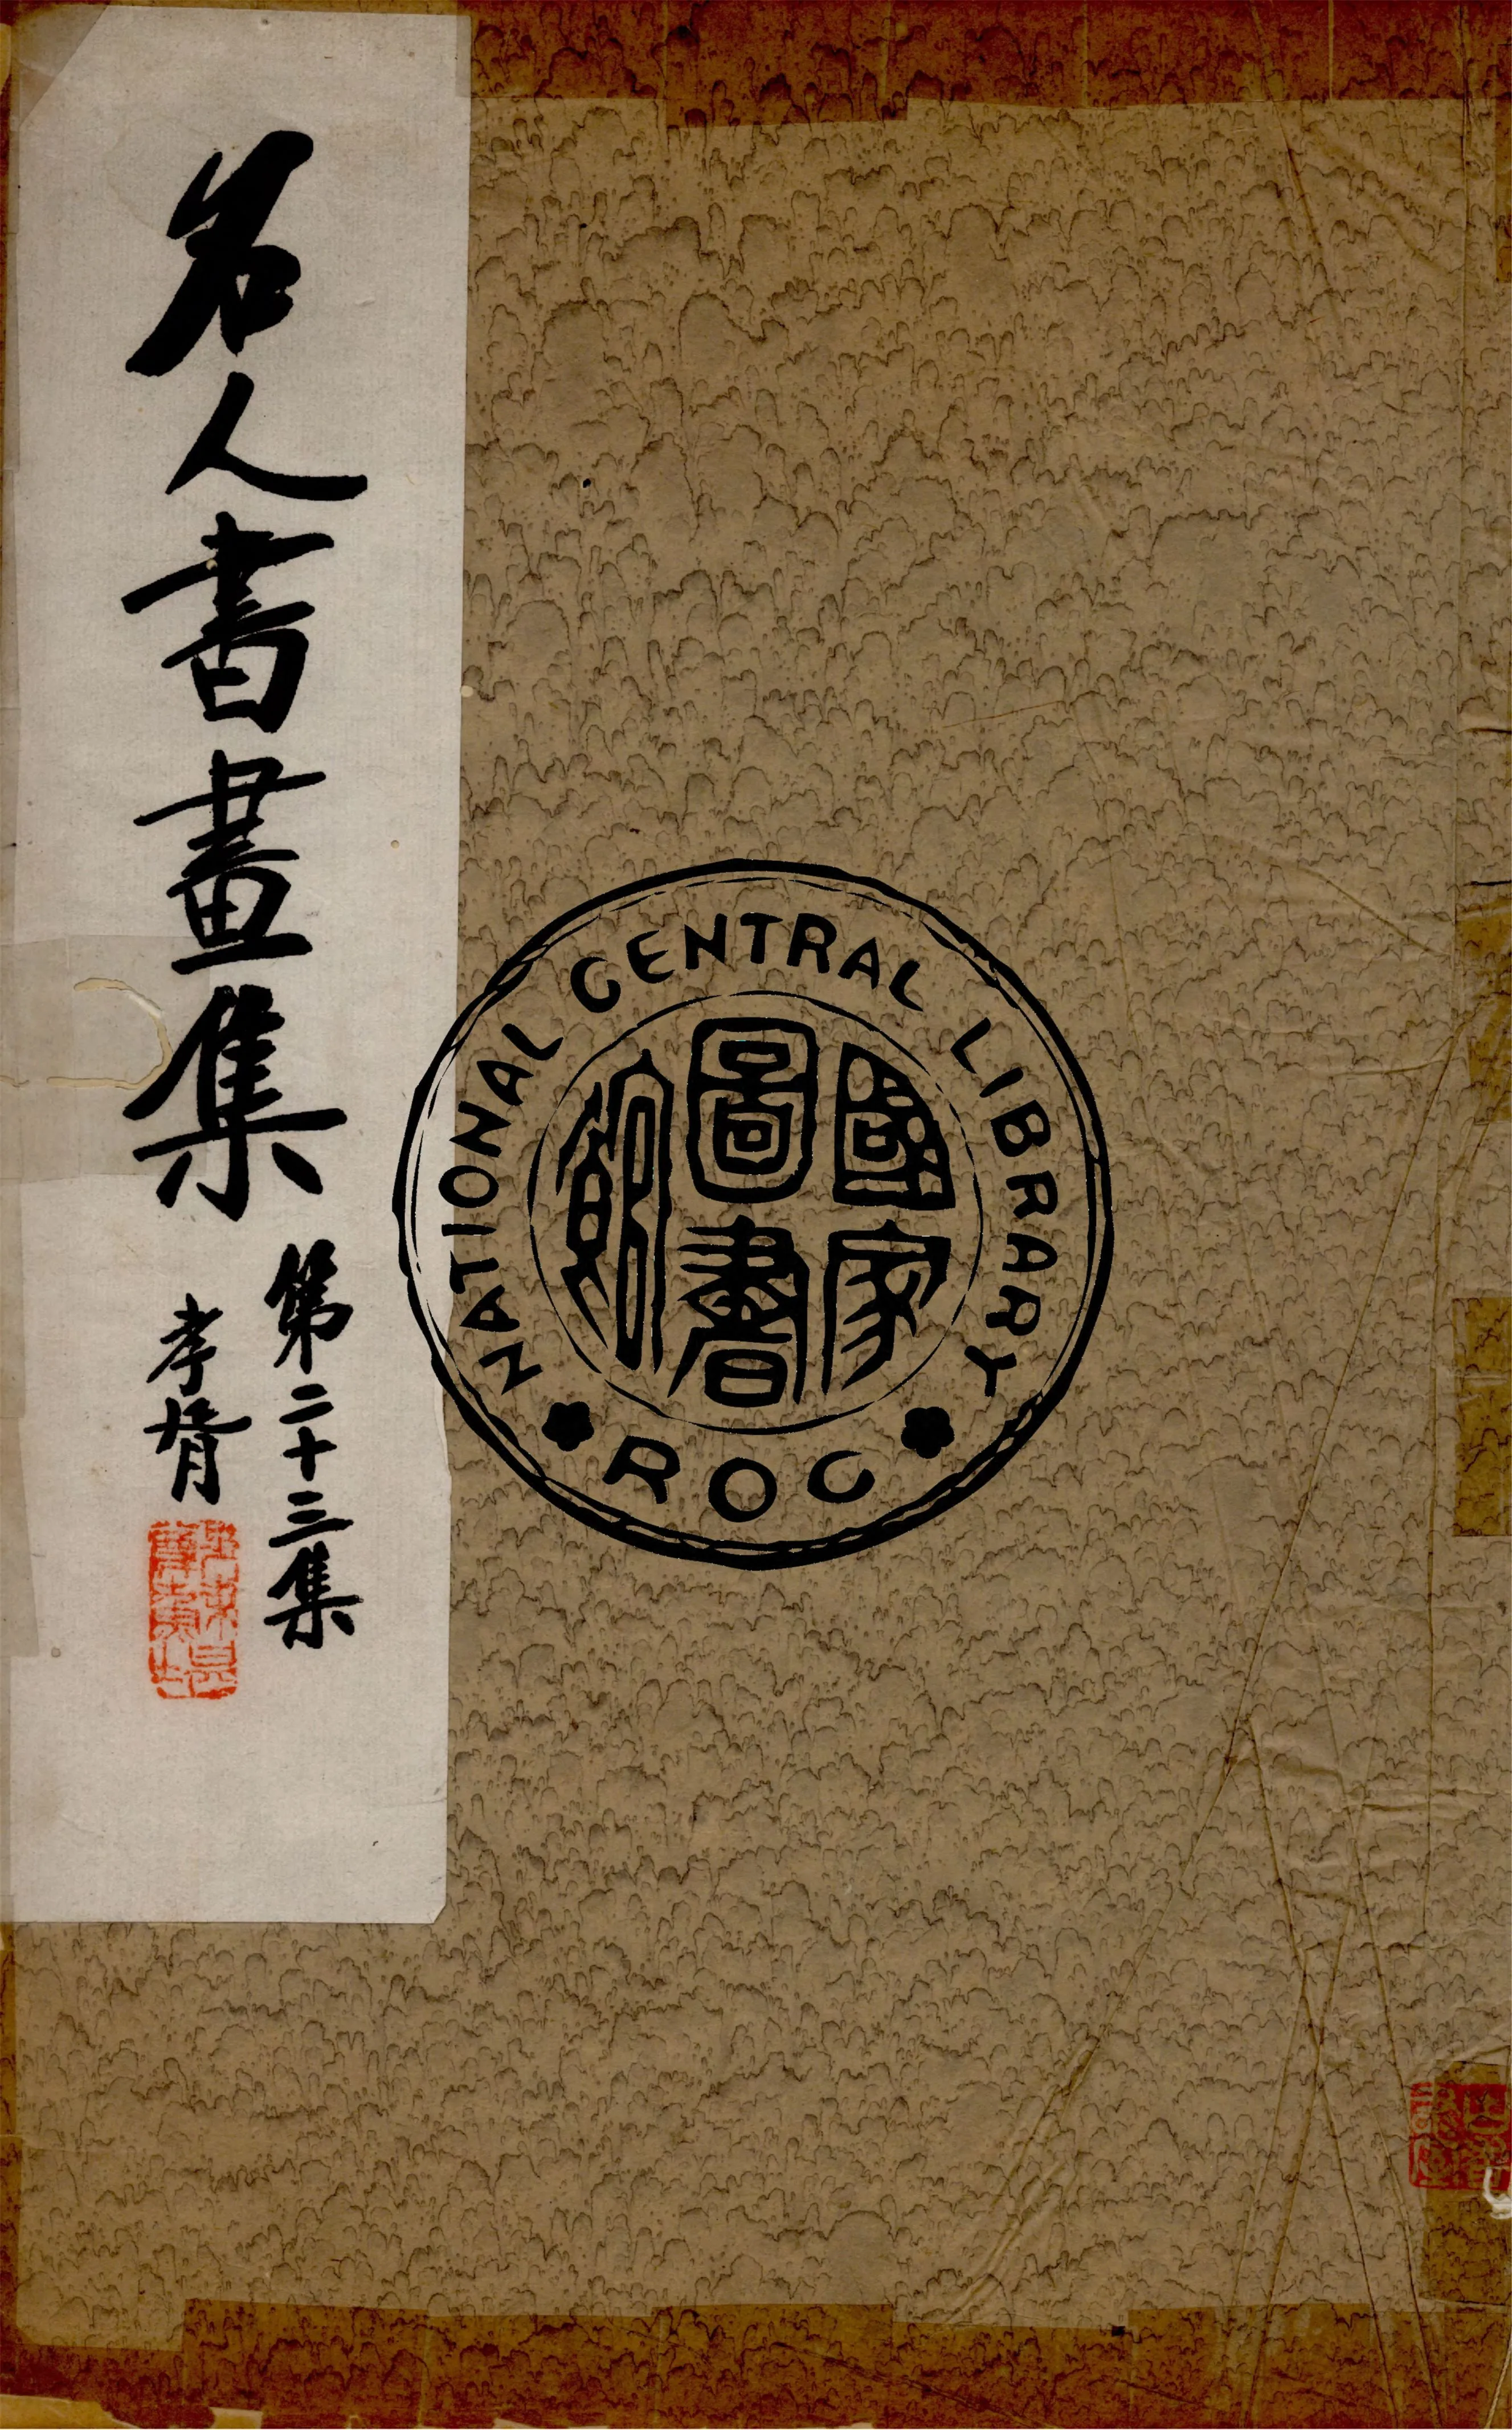 名人書畫集
第二十三集
孝胥
NATIONAL CENTRAL LIBRARY
國家
圖書
館
ROC